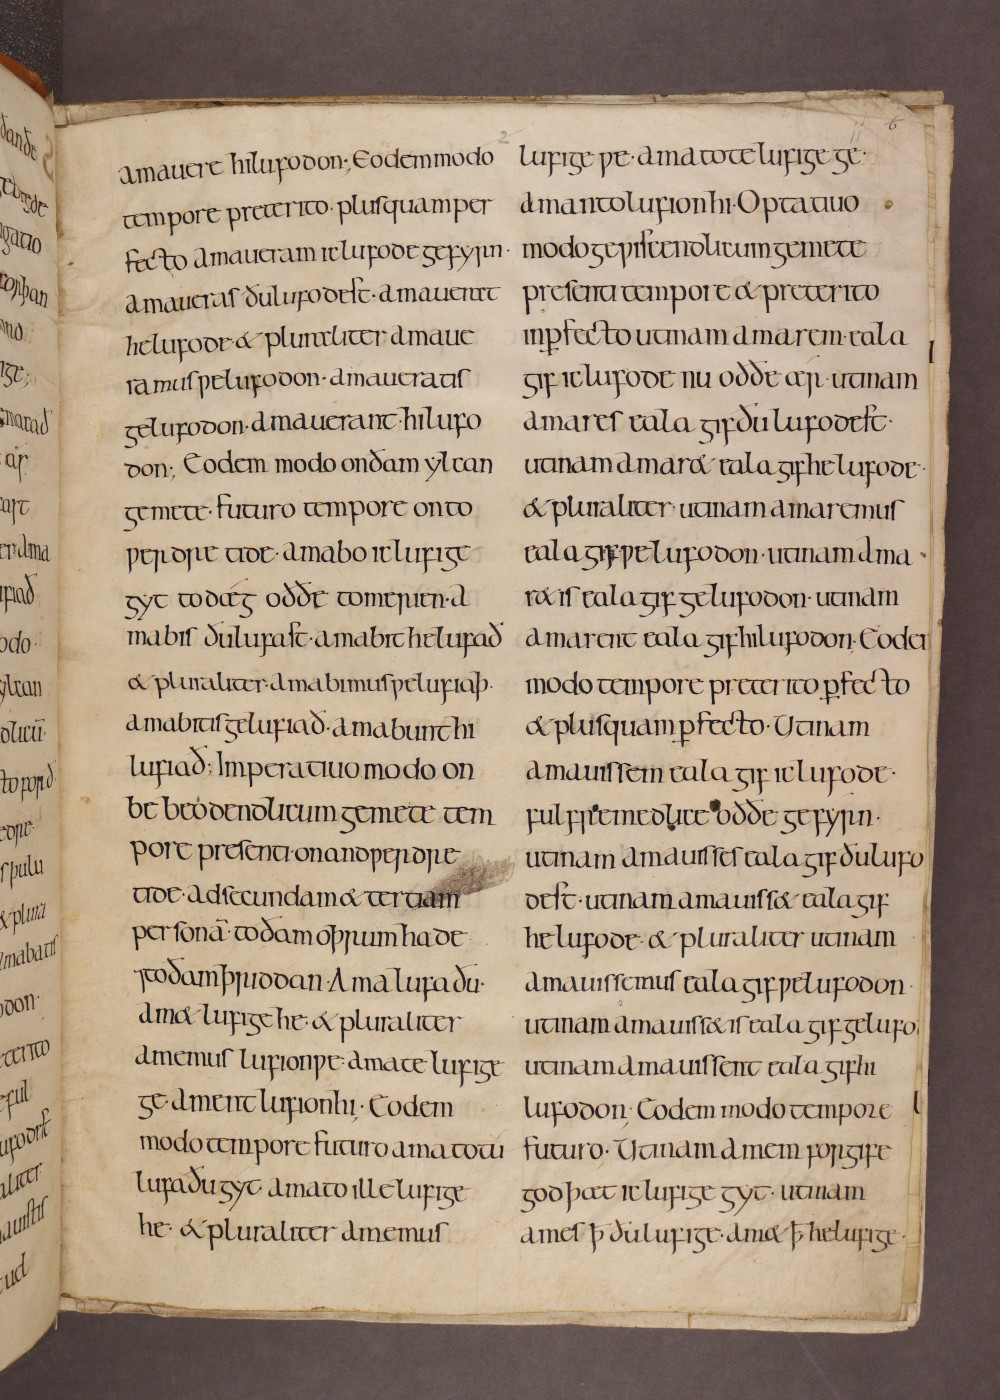 2
11 6
amauere hi lufodon; Eodem modo
tempore preterito· plusquamper
fecto amaueram ic lufode gefyrn·
amaueras ðu lufodest· amauerit
he lufode· & pluraliter amaue
ramus ƿe lufodon· amaueratis
ge lufodon· amauerant· hi lufo
don; Eodem modo on ðam ylcan
gemete· futuro tempore on to
ƿerdre tide· amabo ic lufige
gyt to dæg oððe tomerien· a
mabis ðu lufast· amabit he lufað
& pluraliter· amabimus ƿe lufiaþ·
amabitis ge lufiað· amabunt hi
lufiað; Imperatiuo modo on
be beodendlicum gemete tem
pore presenti· on andƿerdre
tide· ad secundam & tertiam
personā· to ðam oþrum hade
⁊ to ðam þriddan· Ama lufa ðu·
am& lufige he· & pluraliter
amemus lufion ƿe· amate lufige
ge· ament lufion hi; Eodem
modo tempore futuro amato tu
lufa ðu gyt· amato ille lufige
he· & pluraliter amemus
lufige ƿe· amatote lufige ge·
amanto lufion hi· Optatiuo
modo geƿiscendlicum gemete
presenti tempore & preterito
inꝑfecto utinam amarem· eala
gif ic lufode nu oððe ær· utinam
amares eala gif ðu lufodest·
utinam amar& eala gif he lufode·
& pluraliter· utinam amaremus
eala gif ƿe lufodon· utinam ama
r&is eala gif ge lufodon· utinam
amarent eala gif hi lufodon; Eodē
modo tempore preterito ꝑfecto
& plusquam ꝑfecto· Utinam
amauissem eala gif ic lufode·
fulfremedlice oððe gefyrn·
utinam amauisses eala gif ðu lufo
dest· utinam amauiss& eala gif
he lufode· & pluraliter utinam
amauissemus eala gif ƿe lufodon·
utinam amauiss&is eala gif ge lufo
utinam amauissent eala gif hi
lufodon; Eodem modo tempore
futuro· Utinam amem forgife
god þæt ic lufige gyt· utinam
ames ꝥ ðu lufige· am& ꝥ he lufige·